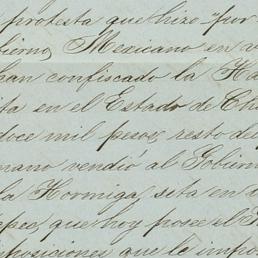 protesta que hizo por
Mexicano en
han confiscado la Ha
ta en el Estado de Ch
doce mil pesos, resto de
mano vendió al Gobier
la Hormiga, sita en
que hoy posee el
posiciones que le impo